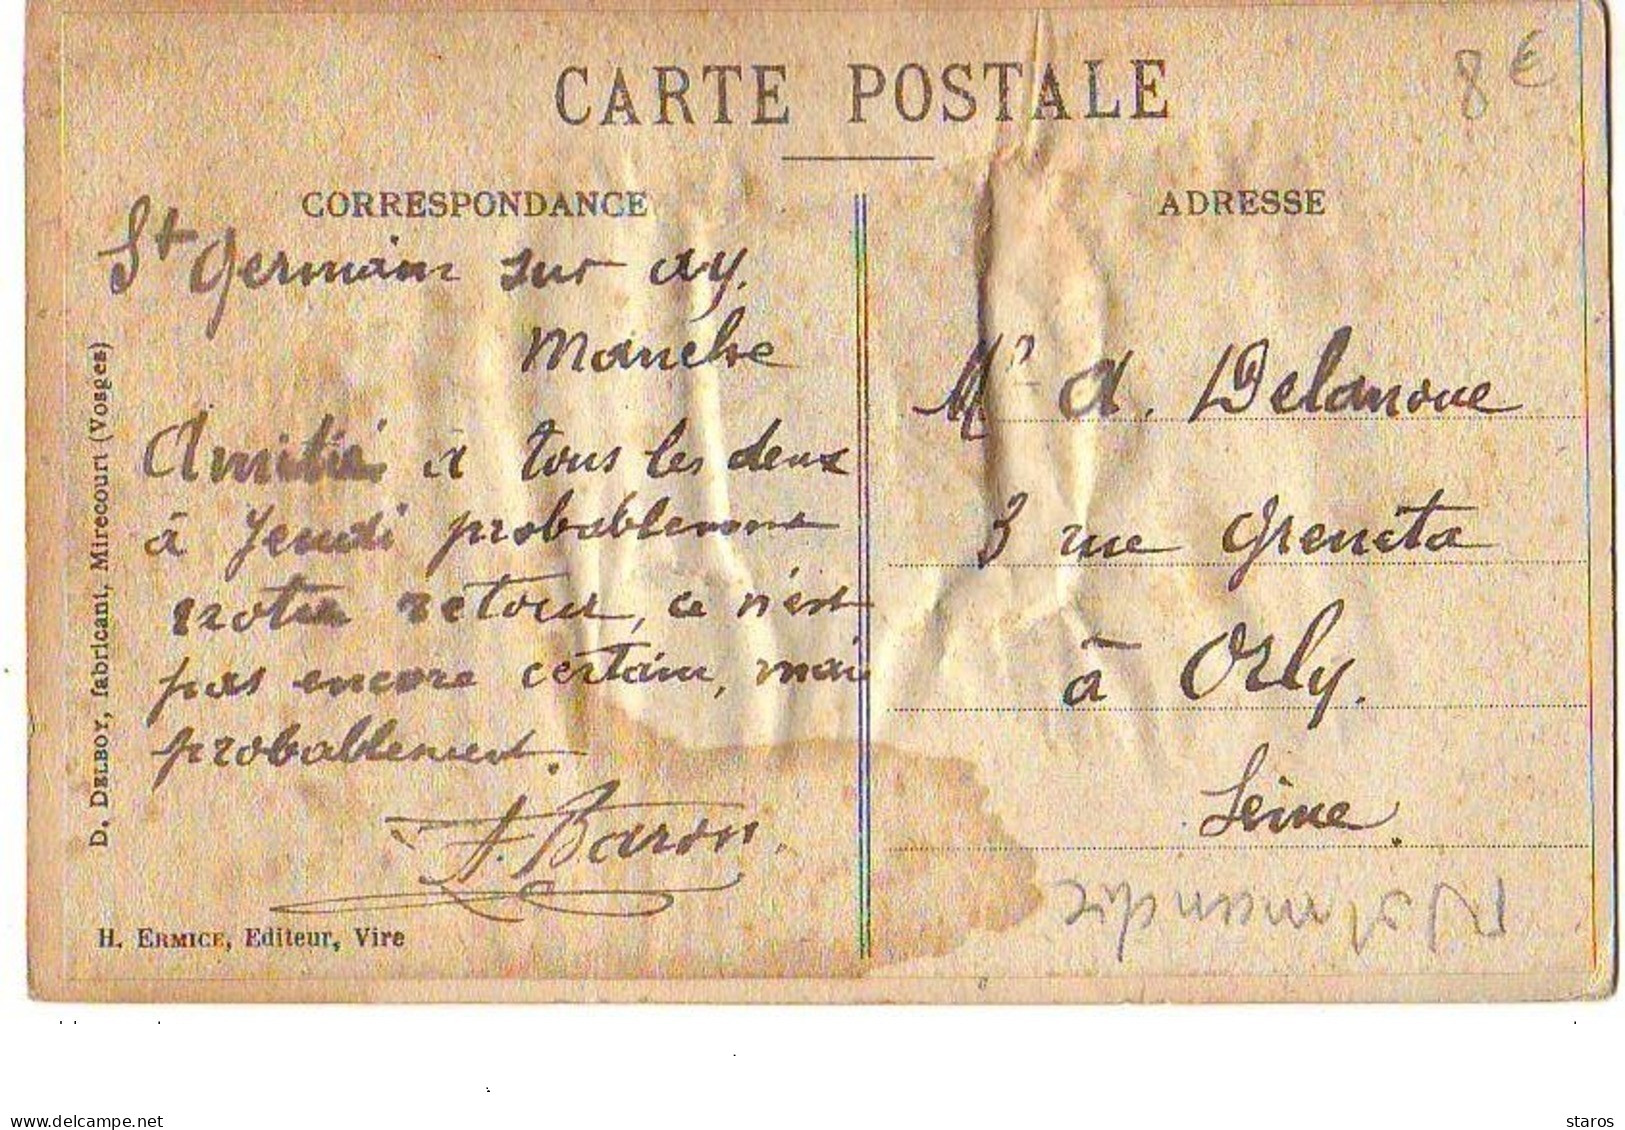 CARTE POSTALE
8 €
CORRESPONDANCE
St Germain sur ay.
Manche
Amitié à tous les deux
à Jeudi probablement
notre retour, ce n'est
pas encore certain, mais
probablement.
A. Baron.
D. DELBOY, fabricant, Mirecourt (Vosges)
H. ERMICE, Editeur, Vire
ADRESSE
Mr A. Delanoue
3 rue Greneta
à Orly.
Seine.
Normandie
delcampe.net
staros